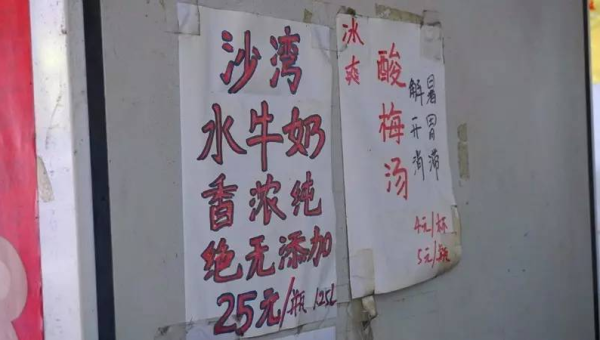 沙湾
水牛奶
香浓纯
绝无添加
25元/瓶 1.25L
冰爽
酸梅汤
解暑
开胃
消滞
4元/杯
5元/瓶